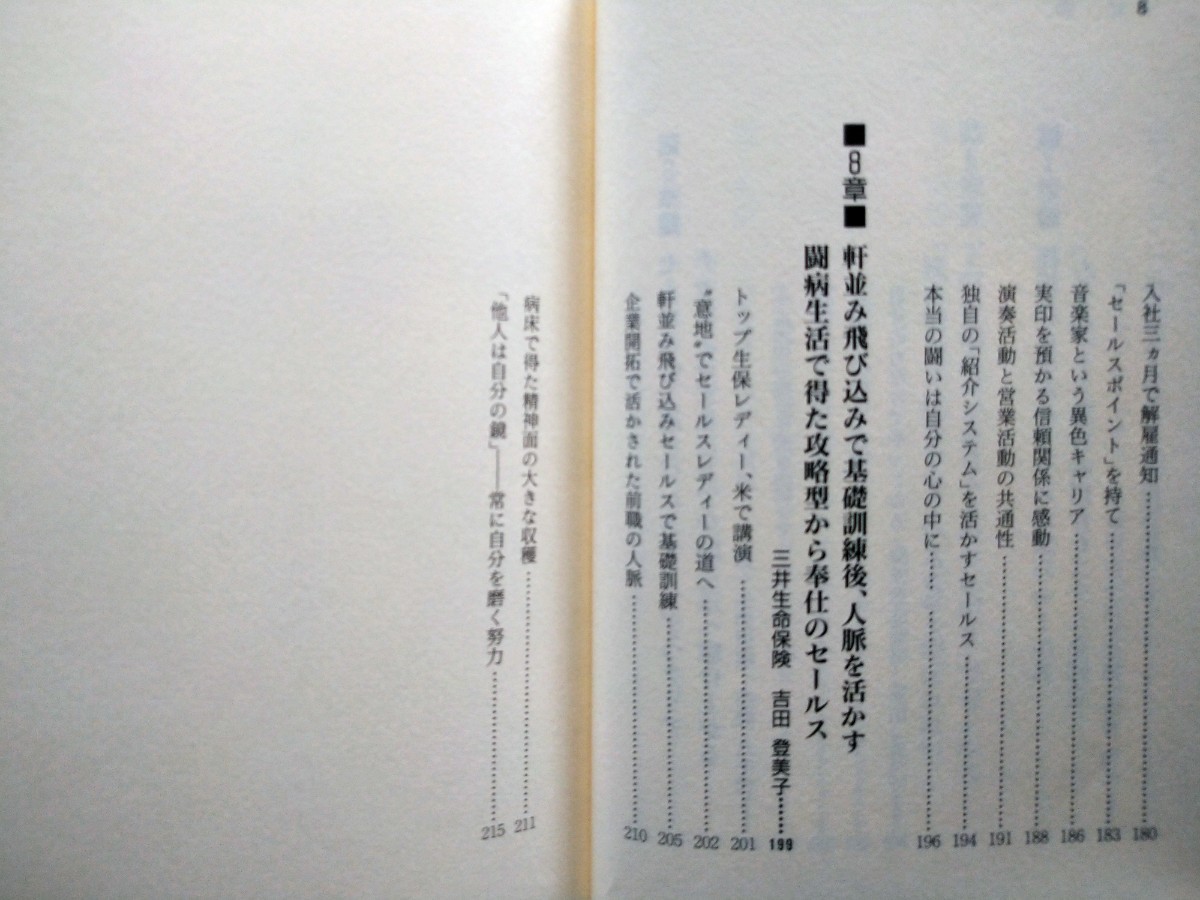 8
入社三ヵ月で解雇通知……………180
「セールスポイント」を持て……………183
音楽家という異色キャリア……………186
実印を預かる信頼関係に感動……………188
演奏活動と営業活動の共通性……………191
独自の「紹介システム」を活かすセールス……………194
本当の闘いは自分の心の中に…………………196
■8章■ 軒並み飛び込みで基礎訓練後、人脈を活かす
闘病生活で得た攻略型から奉仕のセールス
三井生命保険 吉田 登美子……199
トップ生保レディー、米で講演……………201
〝意地〟でセールスレディーの道へ……………202
軒並み飛び込みセールスで基礎訓練……………205
企業開拓で活かされた前職の人脈……………210
病床で得た精神面の大きな収穫……………211
「他人は自分の鏡」――常に自分を磨く努力……………215